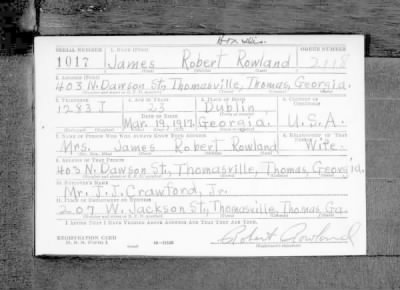 SERIAL NUMBER 1. NAME (Print) ORDER NUMBER
1017 James Robert Rowland 2118
(First) (Middle) (Last)
2. ADDRESS (Print)
403 N. Dawson St., Thomasville, Thomas, Georgia.
3. TELEPHONE 4. AGE IN YEARS 5. PLACE OF BIRTH 6. COUNTRY OF CITIZENSHIP
1283 J 23 Dublin
DATE OF BIRTH
Mar. 19, 1917. Georgia. U.S.A.
7. NAME OF PERSON WHO WILL ALWAYS KNOW YOUR ADDRESS 8. RELATIONSHIP OF THAT PERSON
Mrs. James Robert Rowland Wife.
9. ADDRESS OF THAT PERSON
403 N. Dawson St., Thomasville, Thomas, Georgia.
10. EMPLOYER'S NAME
Mr. J. J. Crawford, Jr.
11. PLACE OF EMPLOYMENT OR BUSINESS
207 W. Jackson St., Thomasville, Thomas, Ga.
I AFFIRM THAT I HAVE VERIFIED ABOVE ANSWERS AND THAT THEY ARE TRUE.
REGISTRATION CARD
D. S. S. FORM 1 Robert Rowland
(Registrant's signature)